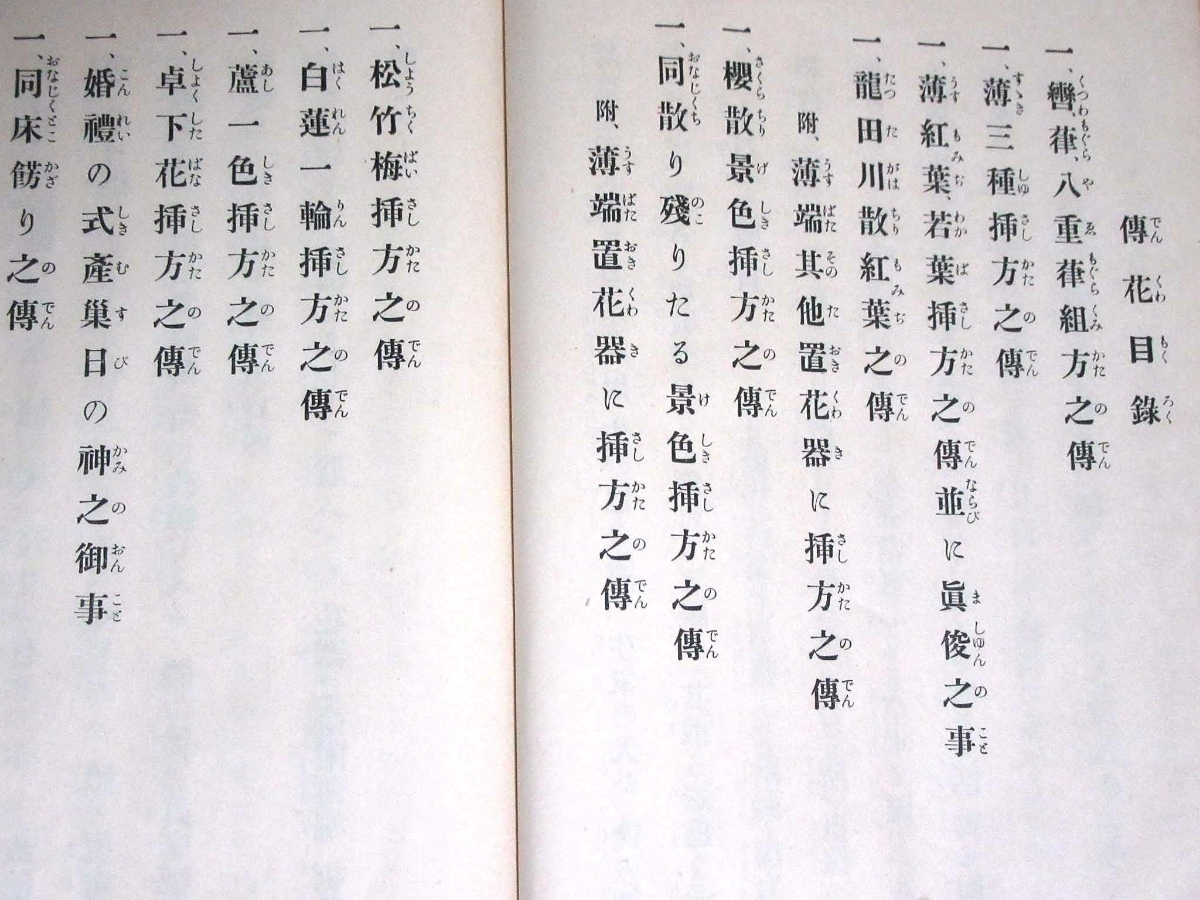 傳花目錄
一、轡、葎、八重葎組方之傳
一、薄三種挿方之傳
一、薄紅葉、若葉挿方之傳並に眞俊之事
一、龍田川散紅葉之傳
附、薄端其他置花器に挿方之傳
一、櫻散景色挿方之傳
一、同散り殘りたる景色挿方之傳
附、薄端置花器に挿方之傳
一、松竹梅挿方之傳
一、白蓮一輪挿方之傳
一、蘆一色挿方之傳
一、卓下花挿方之傳
一、婚禮の式產巢日の神之御事
一、同床餝り之傳